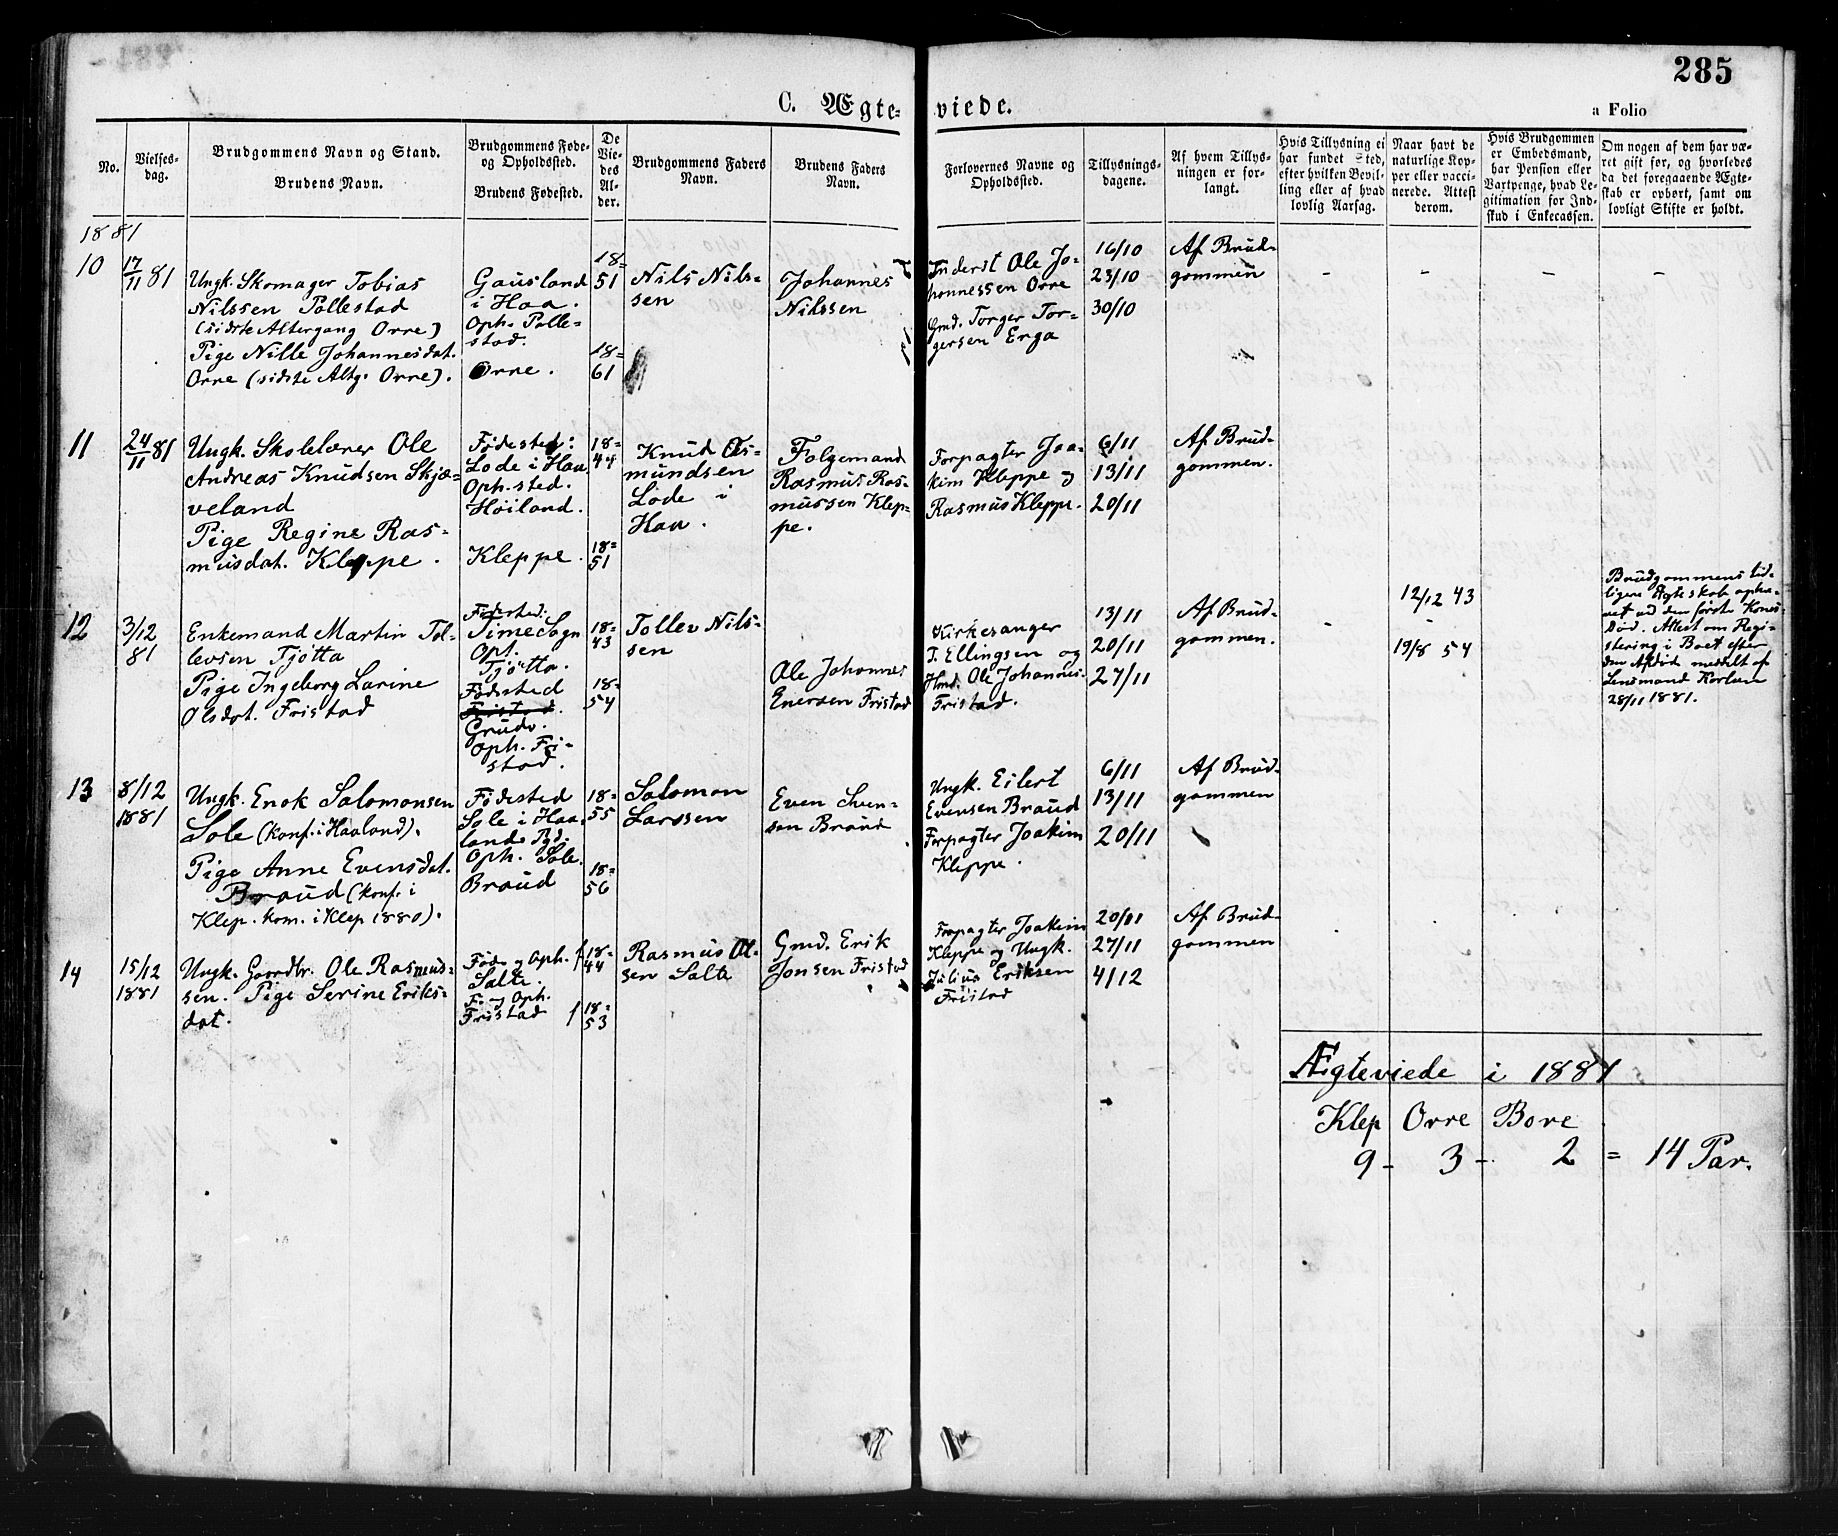 285
C. Ægte-
viede.
a Folio
No.
Vielses-
dag.
Brudgommens Navn og Stand.
Brudens Navn.
Brudgommens Føde-
og Opholdssted.
Brudens Fødested.
De
Vie-
des
Al-
der.
Brudgommens Faders
Navn.
Brudens Faders
Navn.
Forlovernes Navne og
Opholdssted.
Tillysnings-
dagene.
Af hvem Tillys-
ningen er for-
langt.
Hvis Tillysning ei
har fundet Sted,
efter hvilken Bevil-
ling eller af hvad
lovlig Aarsag.
Naar havt de
naturlige Kop-
per eller vacci-
nerede. Attest
derom.
Hvis Brudgommen
er Embedsmand,
har Pension eller
Vartpenge, hvad Le-
gitimation for Ind-
skud i Enkecassen.
Om nogen af dem har væ-
ret gift før, og hvorledes
da det foregaaende Ægte-
skab er ophørt, samt om
lovligt Skifte er holdt.
1881
10
17/11 81
Ungk. Skomager Tobias
Nilssen Pollestad
(sidste Altergang Orre)
Pige Nille Johannesdat.
Orre (sidste Altg. Orre).
Gausland
i Haa.
Oph. Polle-
stad.
Orre.
18-
51
18-
61
Nils Nils-
sen
Johannes
Nilssen
Inderst Ole Jo-
hannessen Orre
Gmd. Torger Tor-
gersen Erga
16/10
23/10
30/10
Af Brud-
gommen
-
-
-
-
11
24/11 81
Ungk. Skolelærer Ole
Andreas Knudsen Skjæ-
veland
Pige Regine Ras-
musdat. Kleppe.
Fødested:
Lode i Haa
Oph.sted.
Høiland.
Kleppe.
18-
44
18-
51
Knud As-
mundsen
Lode i
Haa.
Folgemand
Rasmus Ras-
mussen Klep-
pe.
Forpagter Joa-
kim Kleppe og
Rasmus Kleppe.
6/11
13/11
20/11
Af Brud-
gommen.
12
3/12
81
Enkemand Martin Tol-
levsen Tjøtta
Pige Ingeborg Larine
Olsdat. Fristad
Fødested:
Time Sogn
Opt.
Tjøtta.
Fødested
Fristad.
Grude.
Oph. Fri-
stad.
18-
43
18-
54
Tollev Nils-
sen
Ole Johannes
Enersen Fristad
Kirkesanger
T. Ellingsen og
Hmd. Ole Johannes-
Fristad.
13/11
20/11
27/11
Af Brud-
gommen.
12/12 43
-
19/8 54
Brudgommens tid-
ligere Ægteskab ophæ-
vet ved den første Kones
Død. Attest om Regi-
stering i Boet efter
den Afdøde meddelt af
Lensmand
28/11 1881.
13
8/12
1881
Ungk. Enok Salomonsen
Sole (konf. i Haaland).
Pige Anne Evensdat.
Braud (konf. i
Klep. kom. i Klep 1880).
Fødested
Sole i Haa-
lands Pgd.
Oph. Sole.
Braud
18-
55
18-
56
Salomon
Larssen
Even Sven-
sen Braud
Ungk. Eilert
Evensen Braud
Forpagter Joakim
Kleppe.
6/11
13/11
20/11
Af Brud-
gommen
14
15/12
1881
Ungk. Gaardbr. Ole Rasmus-
sen. Pige Serine Eriks-
dat.
Føde og Oph.
Salte
F. og Oph.
Fristad
18-
44
18-
53
Rasmus Ol-
sen Salte
Gmd. Erik
Jonsen Fristad
Forpagter Joakim
Kleppe og Ungk.
Julius Eriksen
Fristad
20/11
27/11
4/12
Af Brud-
gommen
Ægteviede i 1881
Klep Orre Bore
9 - 3 - 2 = 14 Par.